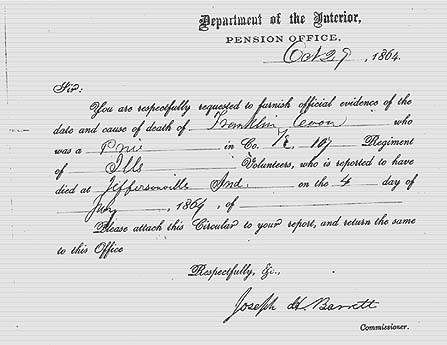 Department of the Interior,
PENSION OFFICE.
Oct 29, 1864.
Sir:
You are respectfully requested to furnish official evidence of the
date and cause of death of Franklin who
was a Priv in Co. 107 Regiment
of Ills Volunteers, who is reported to have
died at Jeffersonville Ind. on the 4 day of
, 1864, of
Please attach this Circular to your report, and return the same
to this Office
Respectfully, &c.,
Joseph H. Barrett
Commissioner.